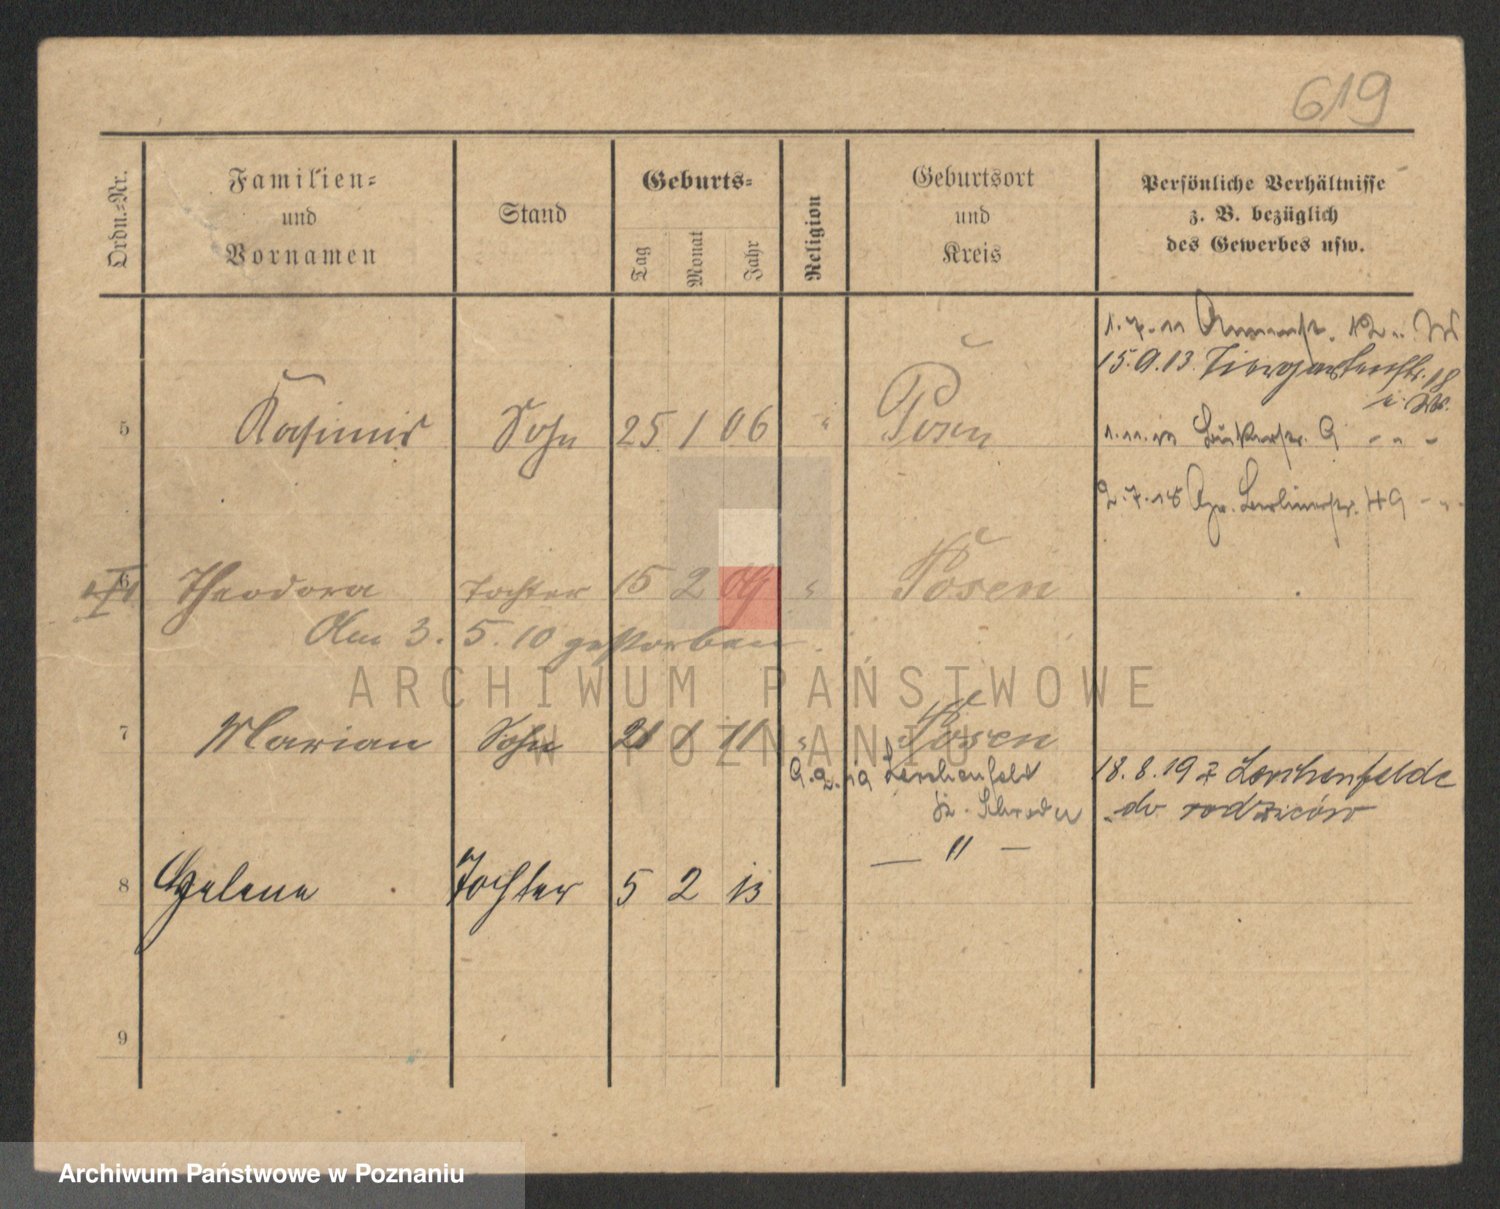 619
Ordn.=Nr.
Familien=
und
Vornamen
Stand
Geburts=
Tag
Monat
Jahr
Religion
Geburtsort
und
Kreis
Persönliche Verhältnisse
z. B. bezüglich
des Gewerbes usw.
1.7.11
15.9.13 Tiergartenstr. 18
5 Kasimir Sohn 25 1 06 " Posen
9
2.7.18 Gr. Berlinerstr. 49
6 Theodora Tochter 15 2 09 " Posen
Am 3. 5. 10 gestorben.
ARCHIWUM PAŃSTWOWE
W POZNANIU
7 Marian Sohn 21 1 11 " Posen
9.2.19 Lerchenfeld
Kr. Schroda
18.8.19 z Lerchenfelde
do rodziców
8 Helene Tochter 5 2 13 — " —
9
Archiwum Państwowe w Poznaniu